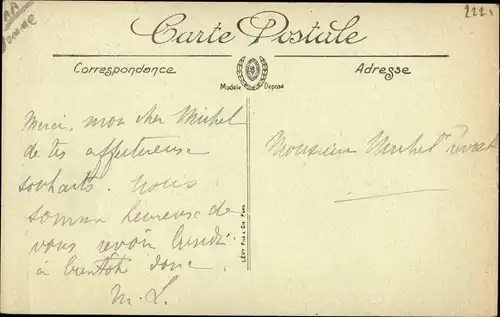 1A
Somme
2221
Carte Postale
Correspondance
Adresse
Modèle Déposé
Merci, mon cher Michel
de tes affectueux
souhaits. Nous
sommes heureuses de
vous revoir lundi.
à bientôt donc
M. L.
Monsieur Michel
LÉVY Fils & Cie Paris